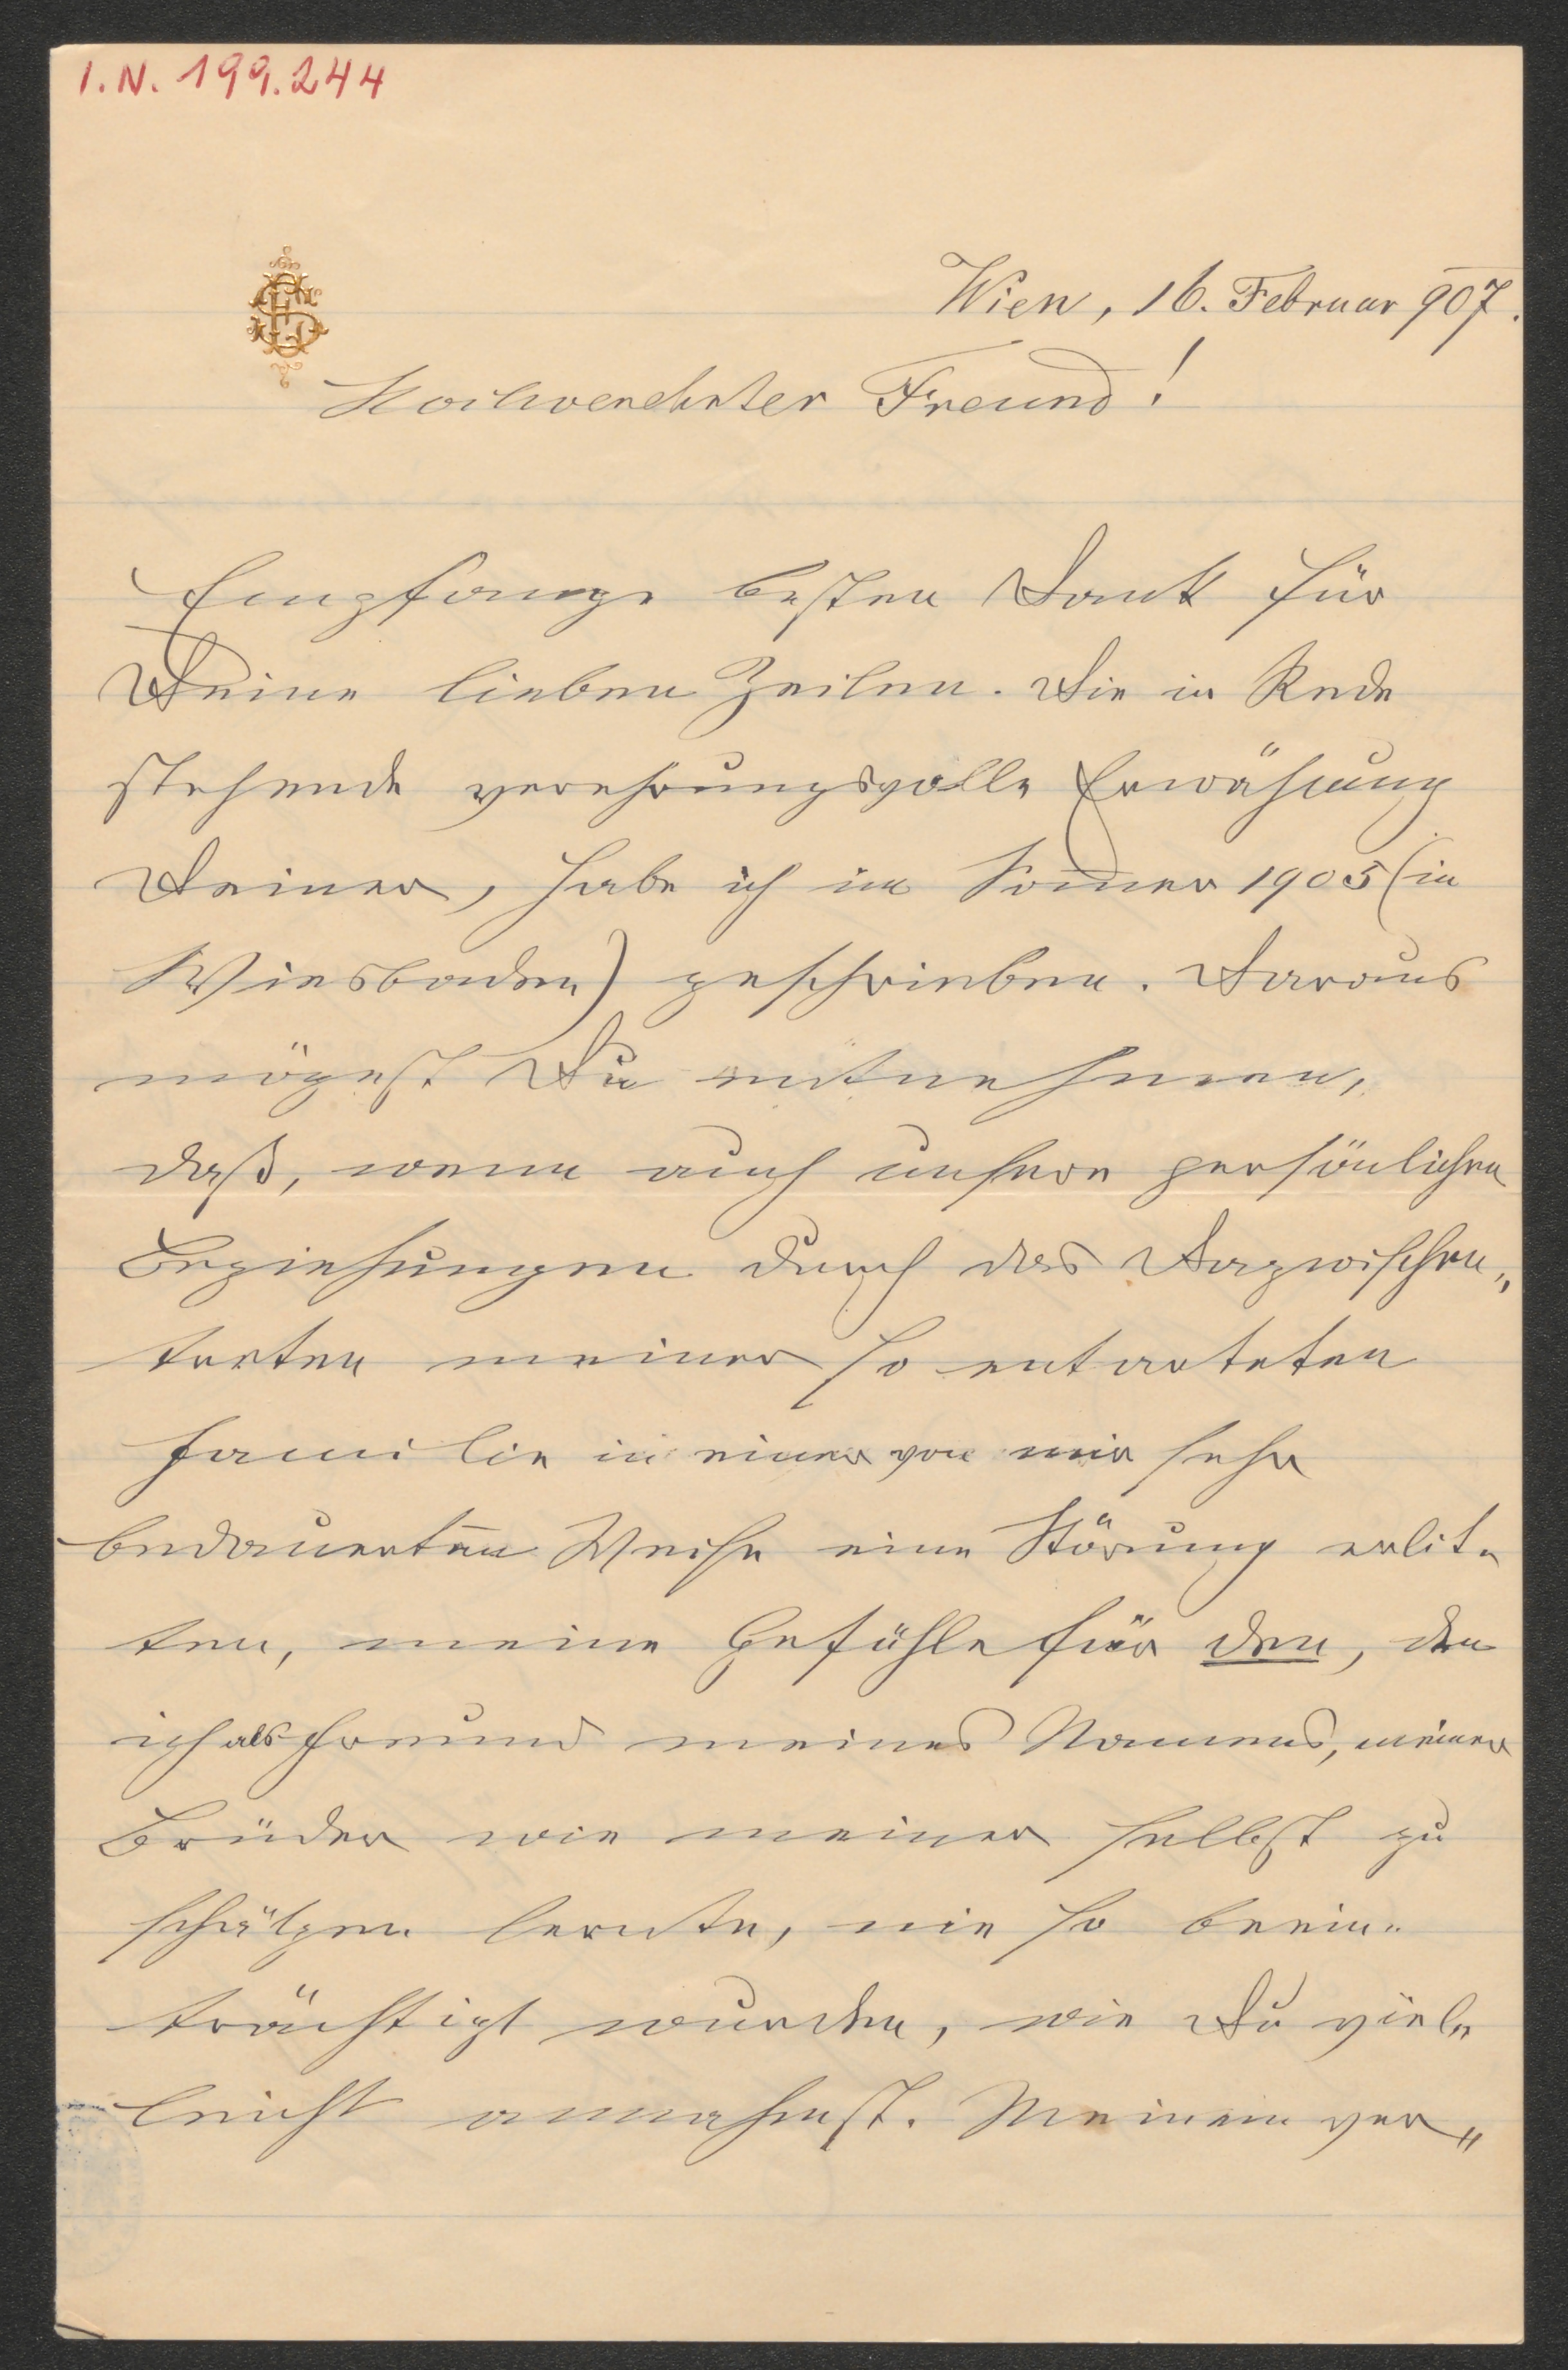 I.N. 199.244
Wien, 16. Februar 907.
Hochverehrter Freund!
Empfange besten Dank für
Deine lieben Zeilen. Die in Rede
stehende verehrungsvolle Erwähnung
Deiner, habe ich im Sommer 1905 (in
Wiesbaden) geschrieben. Daraus
mögest Du entnehmen,
daß, wenn auch unsere persönlichen
Beziehungen durch das Dazwischen„
treten meiner so entarteten
Familie in einer von mir sehr
bedauerten Weise eine Störung erlit„
ten, meine Gefühle für den, den
ich als Freund meines Namens, meiner
Brüder wie meiner selbst zu
schätzen lernte, nie so beein„
trächtigt wurden, wie Du viel„
leicht annahmst. Meinem ver„